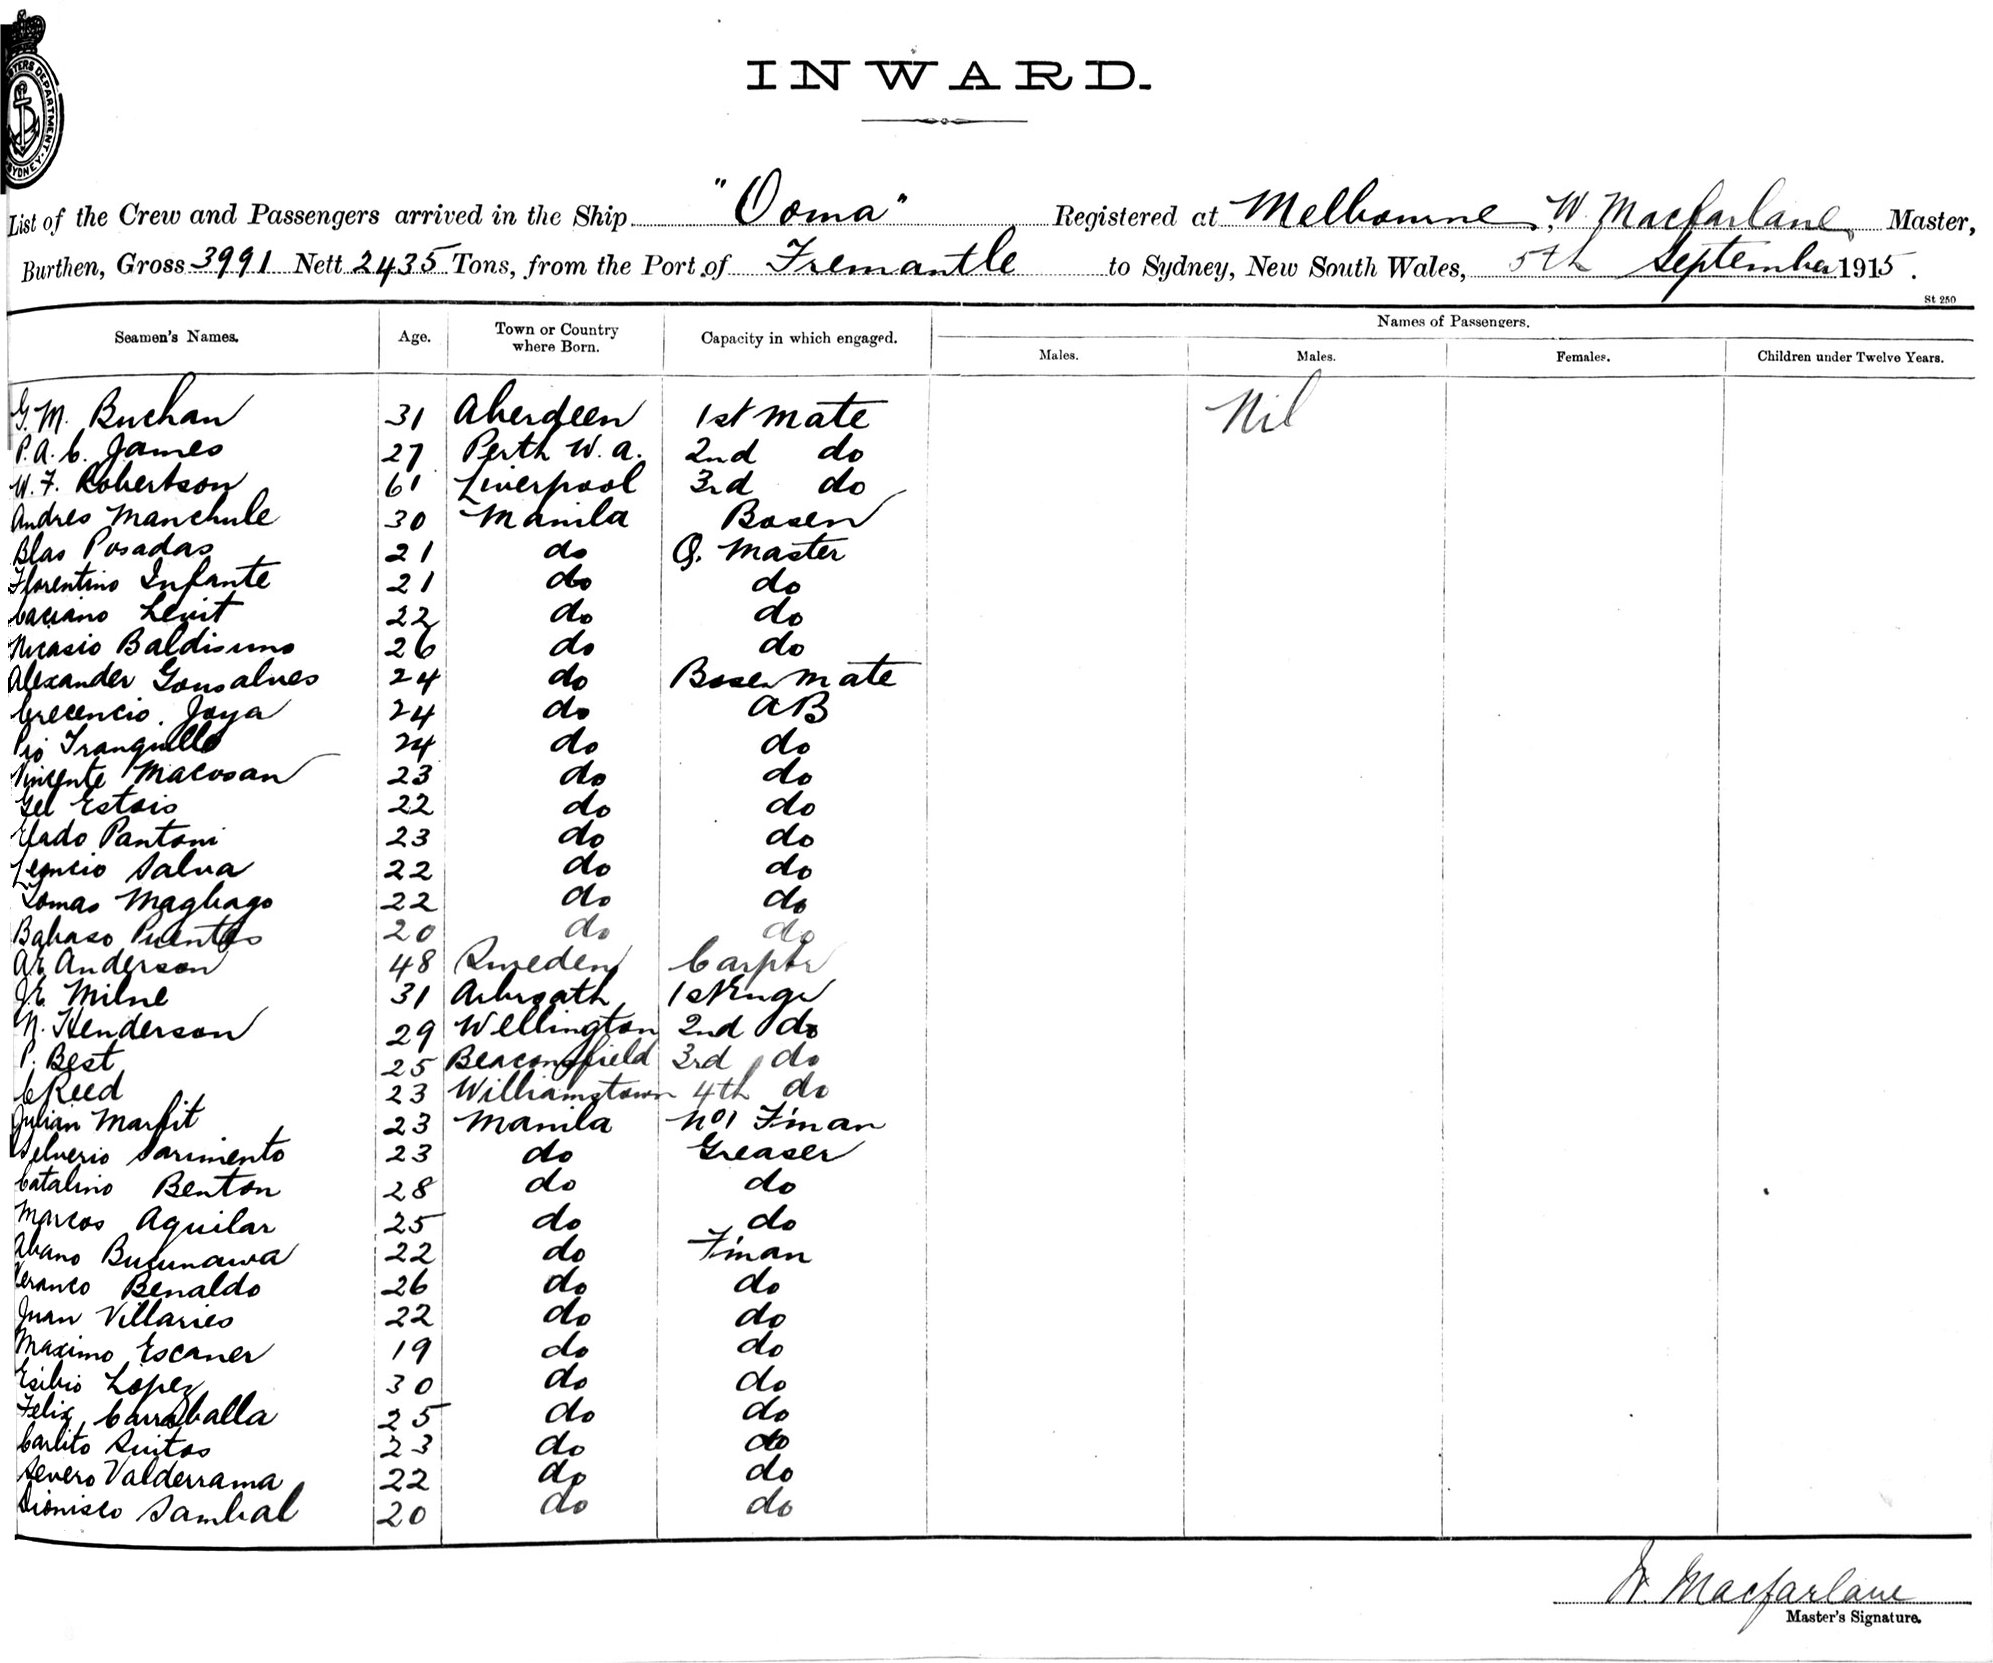 INWARD.
List of the Crew and Passengers arrived in the Ship "Ooma" Registered at Melbourne, W. Macfarlane Master,
Burthen, Gross 3991 Nett 2435 Tons, from the Port of Fremantle to Sydney, New South Wales, 5th September 1915.
St 250
Seamen's Names. Age. Town or Country where Born. Capacity in which engaged. Names of Passengers.
Males. Males. Females. Children under Twelve Years.
G. M. Buchan 31 Aberdeen 1st Mate Nil
P. A. C. James 27 Perth W. A. 2nd do
W. F. Robertson 61 Liverpool 3rd do
Andres Manchule 30 Manila Bosen
Blas Posadas 21 do Q. Master
Florentino Infante 21 do do
Levit 22 do do
Nicasio 26 do do
Alexander Gonsalves 24 do Bosen Mate
Crecencio Joya 24 do AB
Pio Tranquillo 24 do do
Vincente Macosan 23 do do
Gel Estois 22 do do
Elado Pantoni 23 do do
Leoncio Salva 22 do do
Tomas Magbago 22 do do
Puentes 20 do do
Anderson 48 Sweden Carptr
J. E. Milne 31 Arbroath 1st Engr
N. Henderson 29 Wellington 2nd do
P. Best 25 Beaconsfield 3rd do
C Reed 23 Williamstown 4th do
Julian Marfit 23 Manila No1 F'man
Selverio Sarimento 23 do Greaser
Catalino Benton 28 do do
Marcos Aguilar 25 do do
22 do F'man
Benaldo 26 do do
Juan Villaries 22 do do
Maximo Escaner 19 do do
Esibio Lopez 30 do do
Felix Carraballa 25 do do
Carlito Suitos 23 do do
Severo Valderrama 22 do do
Dionisco Sambal 20 do do
W. Macfarlane
Master's Signature.